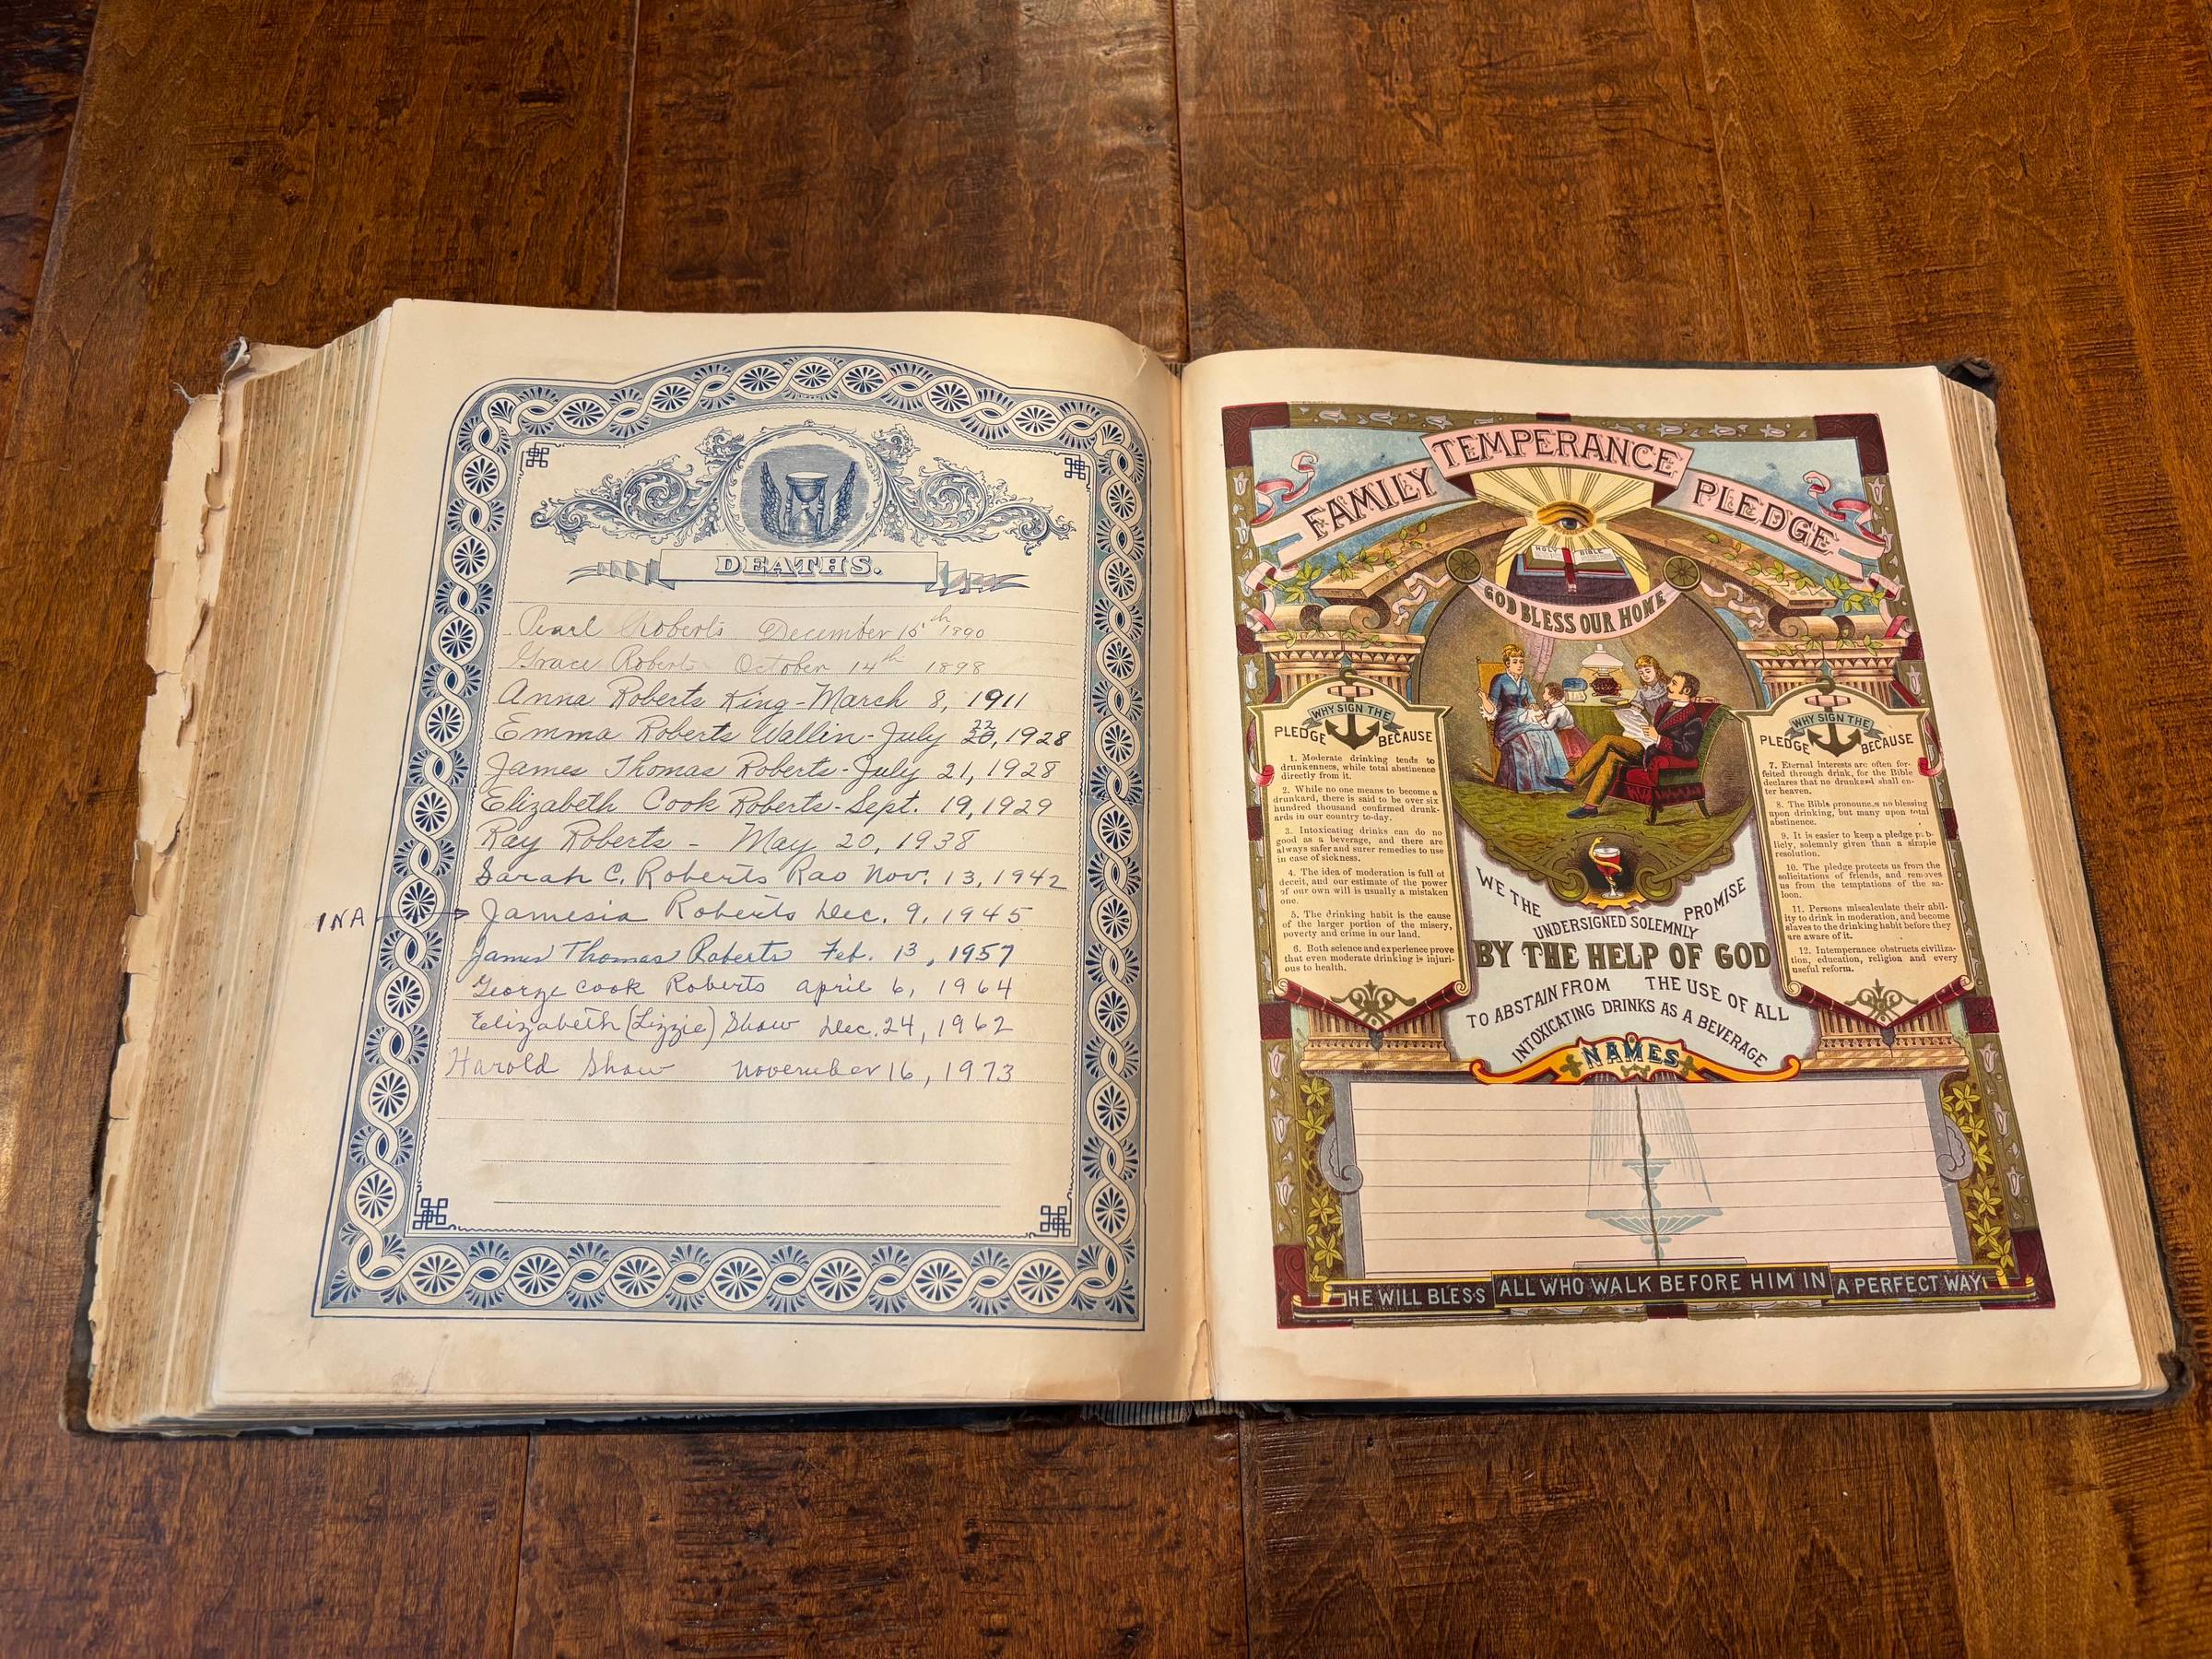 DEATHS.
Pearl Roberts December 15th 1890
Grace Roberts October 14th 1898
Anna Roberts King - March 8, 1911
22
Emma Roberts Wallin - July 20, 1928
James Thomas Roberts - July 21, 1928
Elizabeth Cook Roberts - Sept. 19, 1929
Ray Roberts - May 20, 1938
Sarah C. Roberts Rao Nov. 13, 1942
INA → Jamesia Roberts Dec. 9, 1945
James Thomas Roberts Feb. 13, 1957
George Cook Roberts april 6, 1964
Elizabeth (Lizzie) Show Dec. 24, 1962
Harold Show november 16, 1973
FAMILY TEMPERANCE PLEDGE
HOLY BIBLE
GOD BLESS OUR HOME
WHY SIGN THE
PLEDGE BECAUSE
1. Moderate drinking tends to
drunkenness, while total abstinence
directly from it.
2. While no one means to become a
drunkard, there is said to be over six
hundred thousand confirmed drunk-
ards in our country to-day.
3. Intoxicating drinks can do no
good as a beverage, and there are
always safer and surer remedies to use
in case of sickness.
4. The idea of moderation is full of
deceit, and our estimate of the power
of our own will is usually a mistaken
one.
5. The drinking habit is the cause
of the larger portion of the misery,
poverty and crime in our land.
6. Both science and experience prove
that even moderate drinking is injuri-
ous to health.
WHY SIGN THE
PLEDGE BECAUSE
7. Eternal interests are often for-
feited through drink, for the Bible
declares that no drunkard shall en-
ter heaven.
8. The Bible pronounces no blessing
upon drinking, but many upon total
abstinence.
9. It is easier to keep a pledge pub-
licly, solemnly given than a simple
resolution.
10. The pledge protects us from the
solicitations of friends, and removes
us from the temptations of the sa-
loon.
11. Persons miscalculate their abil-
ity to drink in moderation, and become
slaves to the drinking habit before they
are aware of it.
12. Intemperance obstructs civiliza-
tion, education, religion and every
useful reform.
WE THE
UNDERSIGNED SOLEMNLY
PROMISE
BY THE HELP OF GOD
TO ABSTAIN FROM THE USE OF ALL
INTOXICATING DRINKS AS A BEVERAGE
NAMES
HE WILL BLESS ALL WHO WALK BEFORE HIM IN A PERFECT WAY